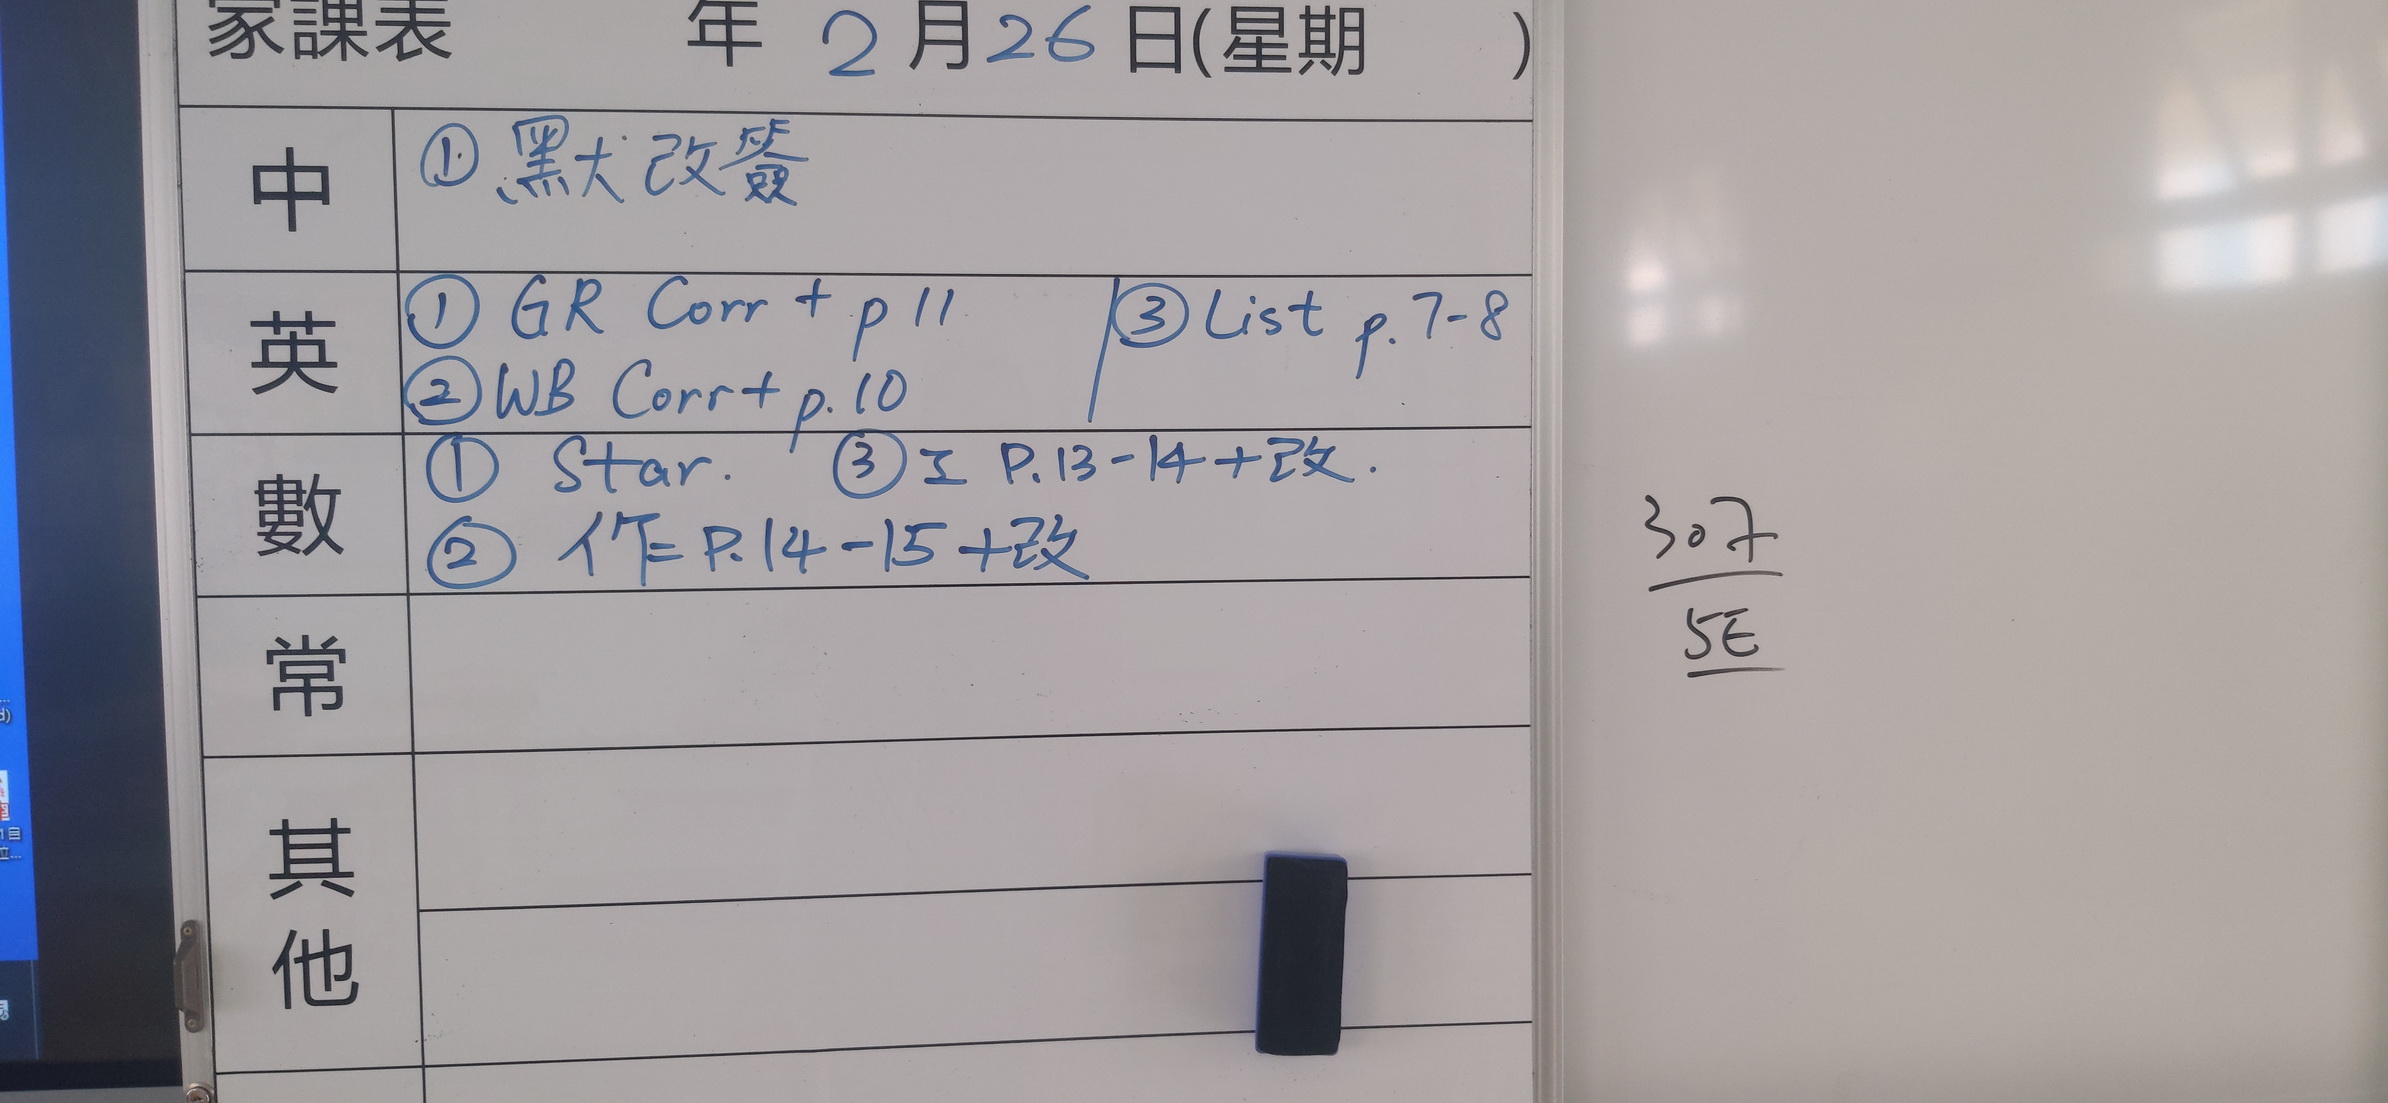 家課表 年 2 月 26 日(星期 )
中 ① 默改簽
英 ① GR Corr + p 11 ③ List p. 7-8
② WB Corr + p. 10
數 ① Star. ③ 工 P.13-14+改.
② 作 P.14-15+改
常
其他
307
5E